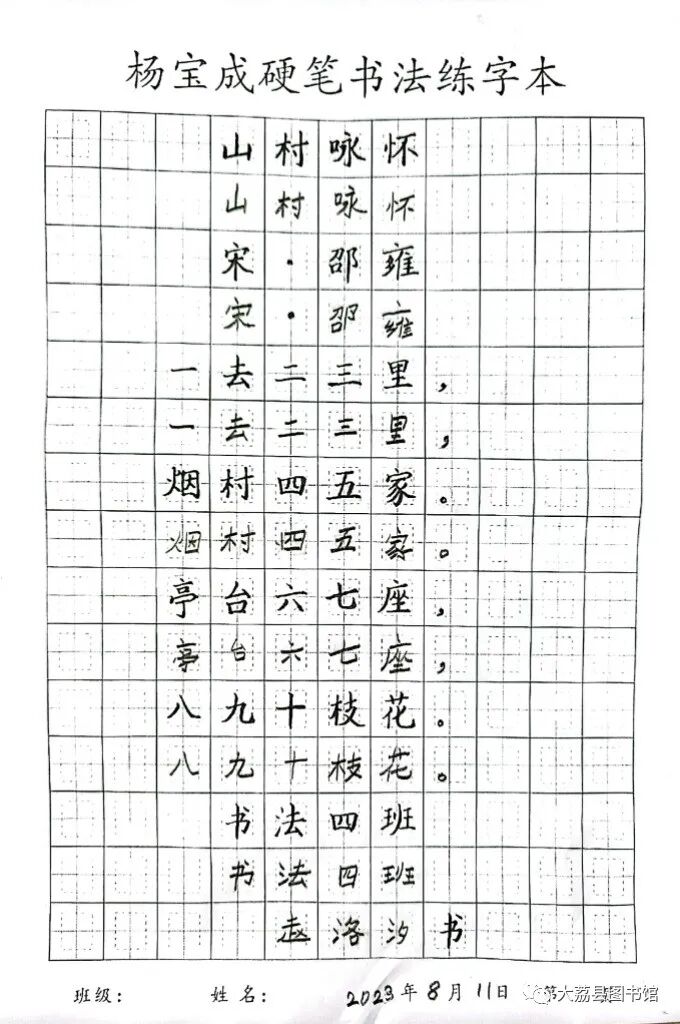 杨宝成硬笔书法练字本
山村咏怀
山村咏怀
宋·邵雍
宋·邵雍
一去二三里，
一去二三里，
烟村四五家。
烟村四五家。
亭台六七座，
亭台六七座，
八九十枝花。
八九十枝花。
书法四班
书法四班
赵洛汐书
班级： 姓名： 2023年8月11日 第
大荔县图书馆